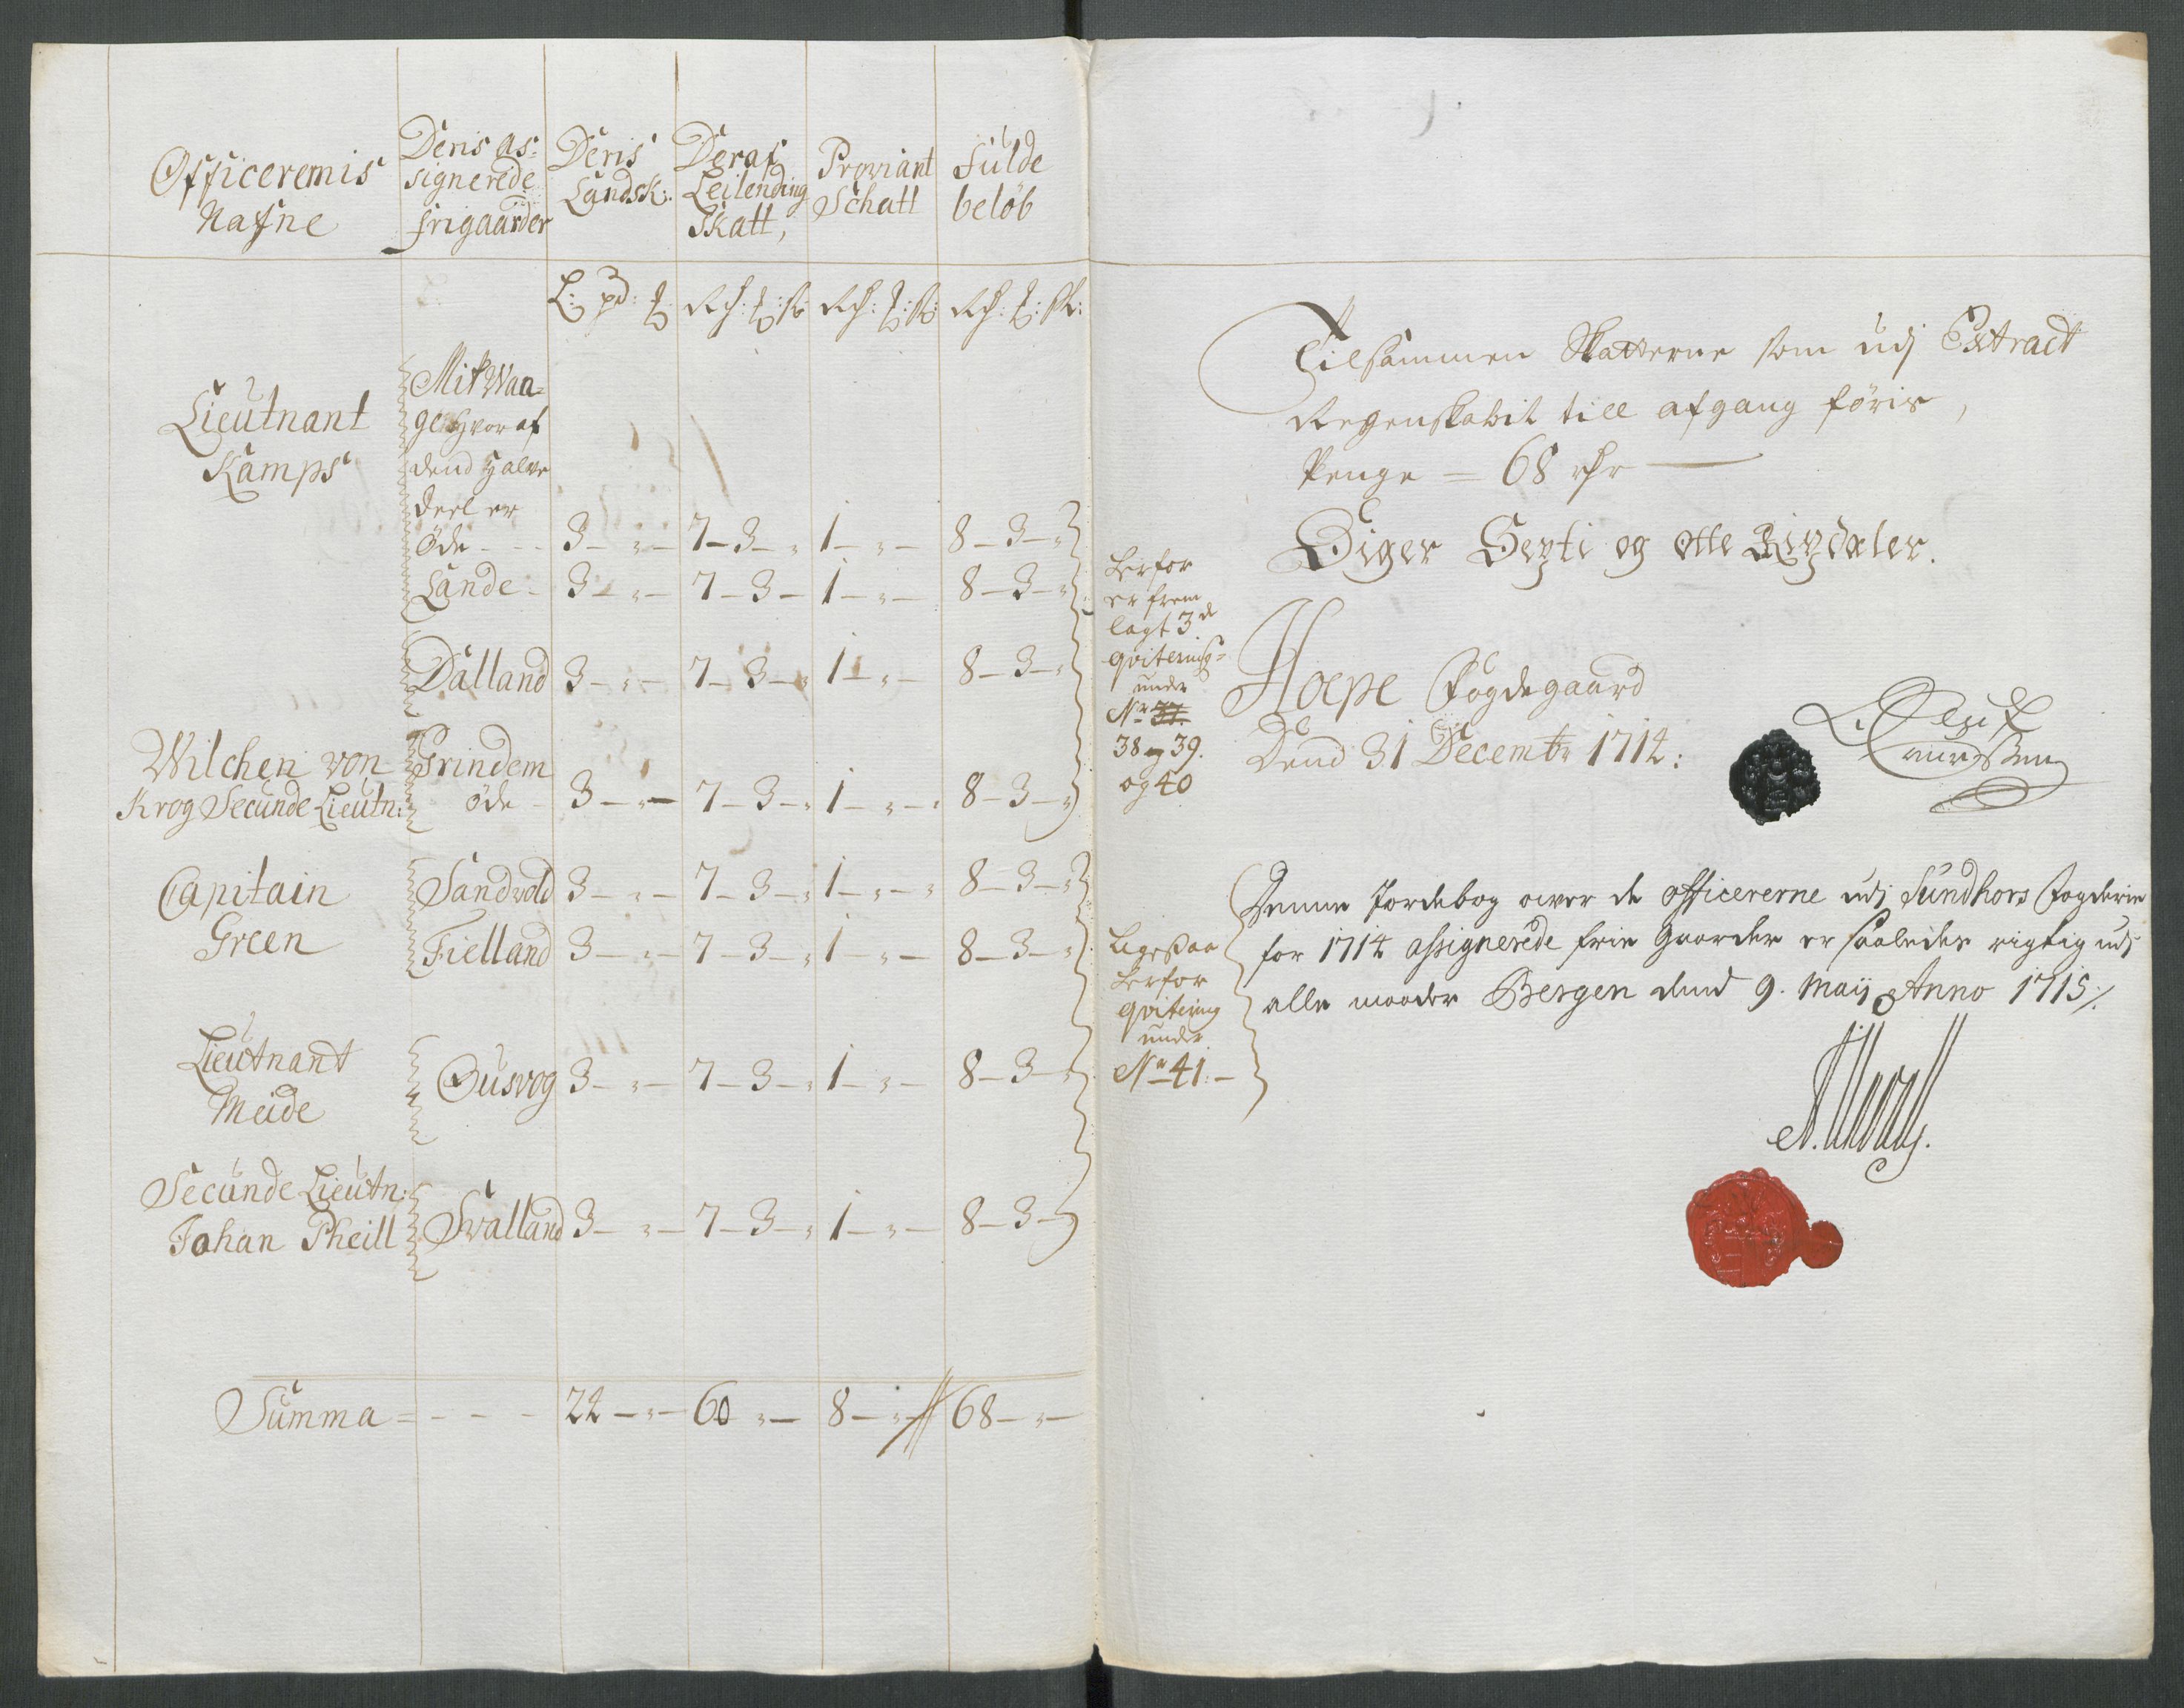 Officerernis
Nafne
Deris as-
signerede
frigaarder
Deris
Landsk:
Deraf
Leilending
Skatt,
Proviant
Schatt
Fulde
beløb
L: pd: ℔: Rd: ℔: s: Rd: ℔: s: Rd: ℔: sk:
Lieutnant
Kamps
Mit Wan-
ge hvor af
dend halve
deel er
Øde - - - 3 - „ - 7 - 3 - „ 1 - „ - 8 - 3 - „
Lande - 3 - „ - 7 - 3 - 1 - „ - 8 - 3 - „
Dalland 3 - „ - 7 - 3 - „ 1 - „ - 8 - 3 - „
Wilchen von
Krog Secunde Lieutn:
Grindem
øde - 3 - „ - 7 - 3 - „ 1 - „ - „ 8 - 3 - „
Capitain
Green
Sandvold 3 - „ - 7 - 3 - „ 1 - „ - „ 8 - 3 - „
Fielland 3 - „ - 7 - 3 - „ 1 - „ - 8 - 3 - „
Lieutnant
Meide
Busvog 3 - „ - 7 - 3 - „ 1 - „ - 8 - 3 - „
Secunde Lieutn:
Johan Pheill
Svalland 3 - „ - 7 - 3 - „ 1 - „ - 8 - 3 -
Summa = - - - 24 - „ - 60 „ - 8 - „ - 68 - „ -
herfor
er frem
lagt 3de
qviterings=
under
No 37.
38 og 39.
og 40
Ligesaa
herfor
qvitering
under
No 41: -
Tilsammen Skatterne som udj Extract
Regenskabit till afgang føris,
Penge = 68 rdr
Siger Sexti og otte Rixdaler.
Hope Fogdegaard
Dend 31 Decembr 1714:
Denne Jordebog over de officererne udj Sundhors Fogderie
for 1714 assignerede frie Gaarder er saaledes rigtig udj
alle maader Bergen dend 9. Maij Anno 1715 ./.